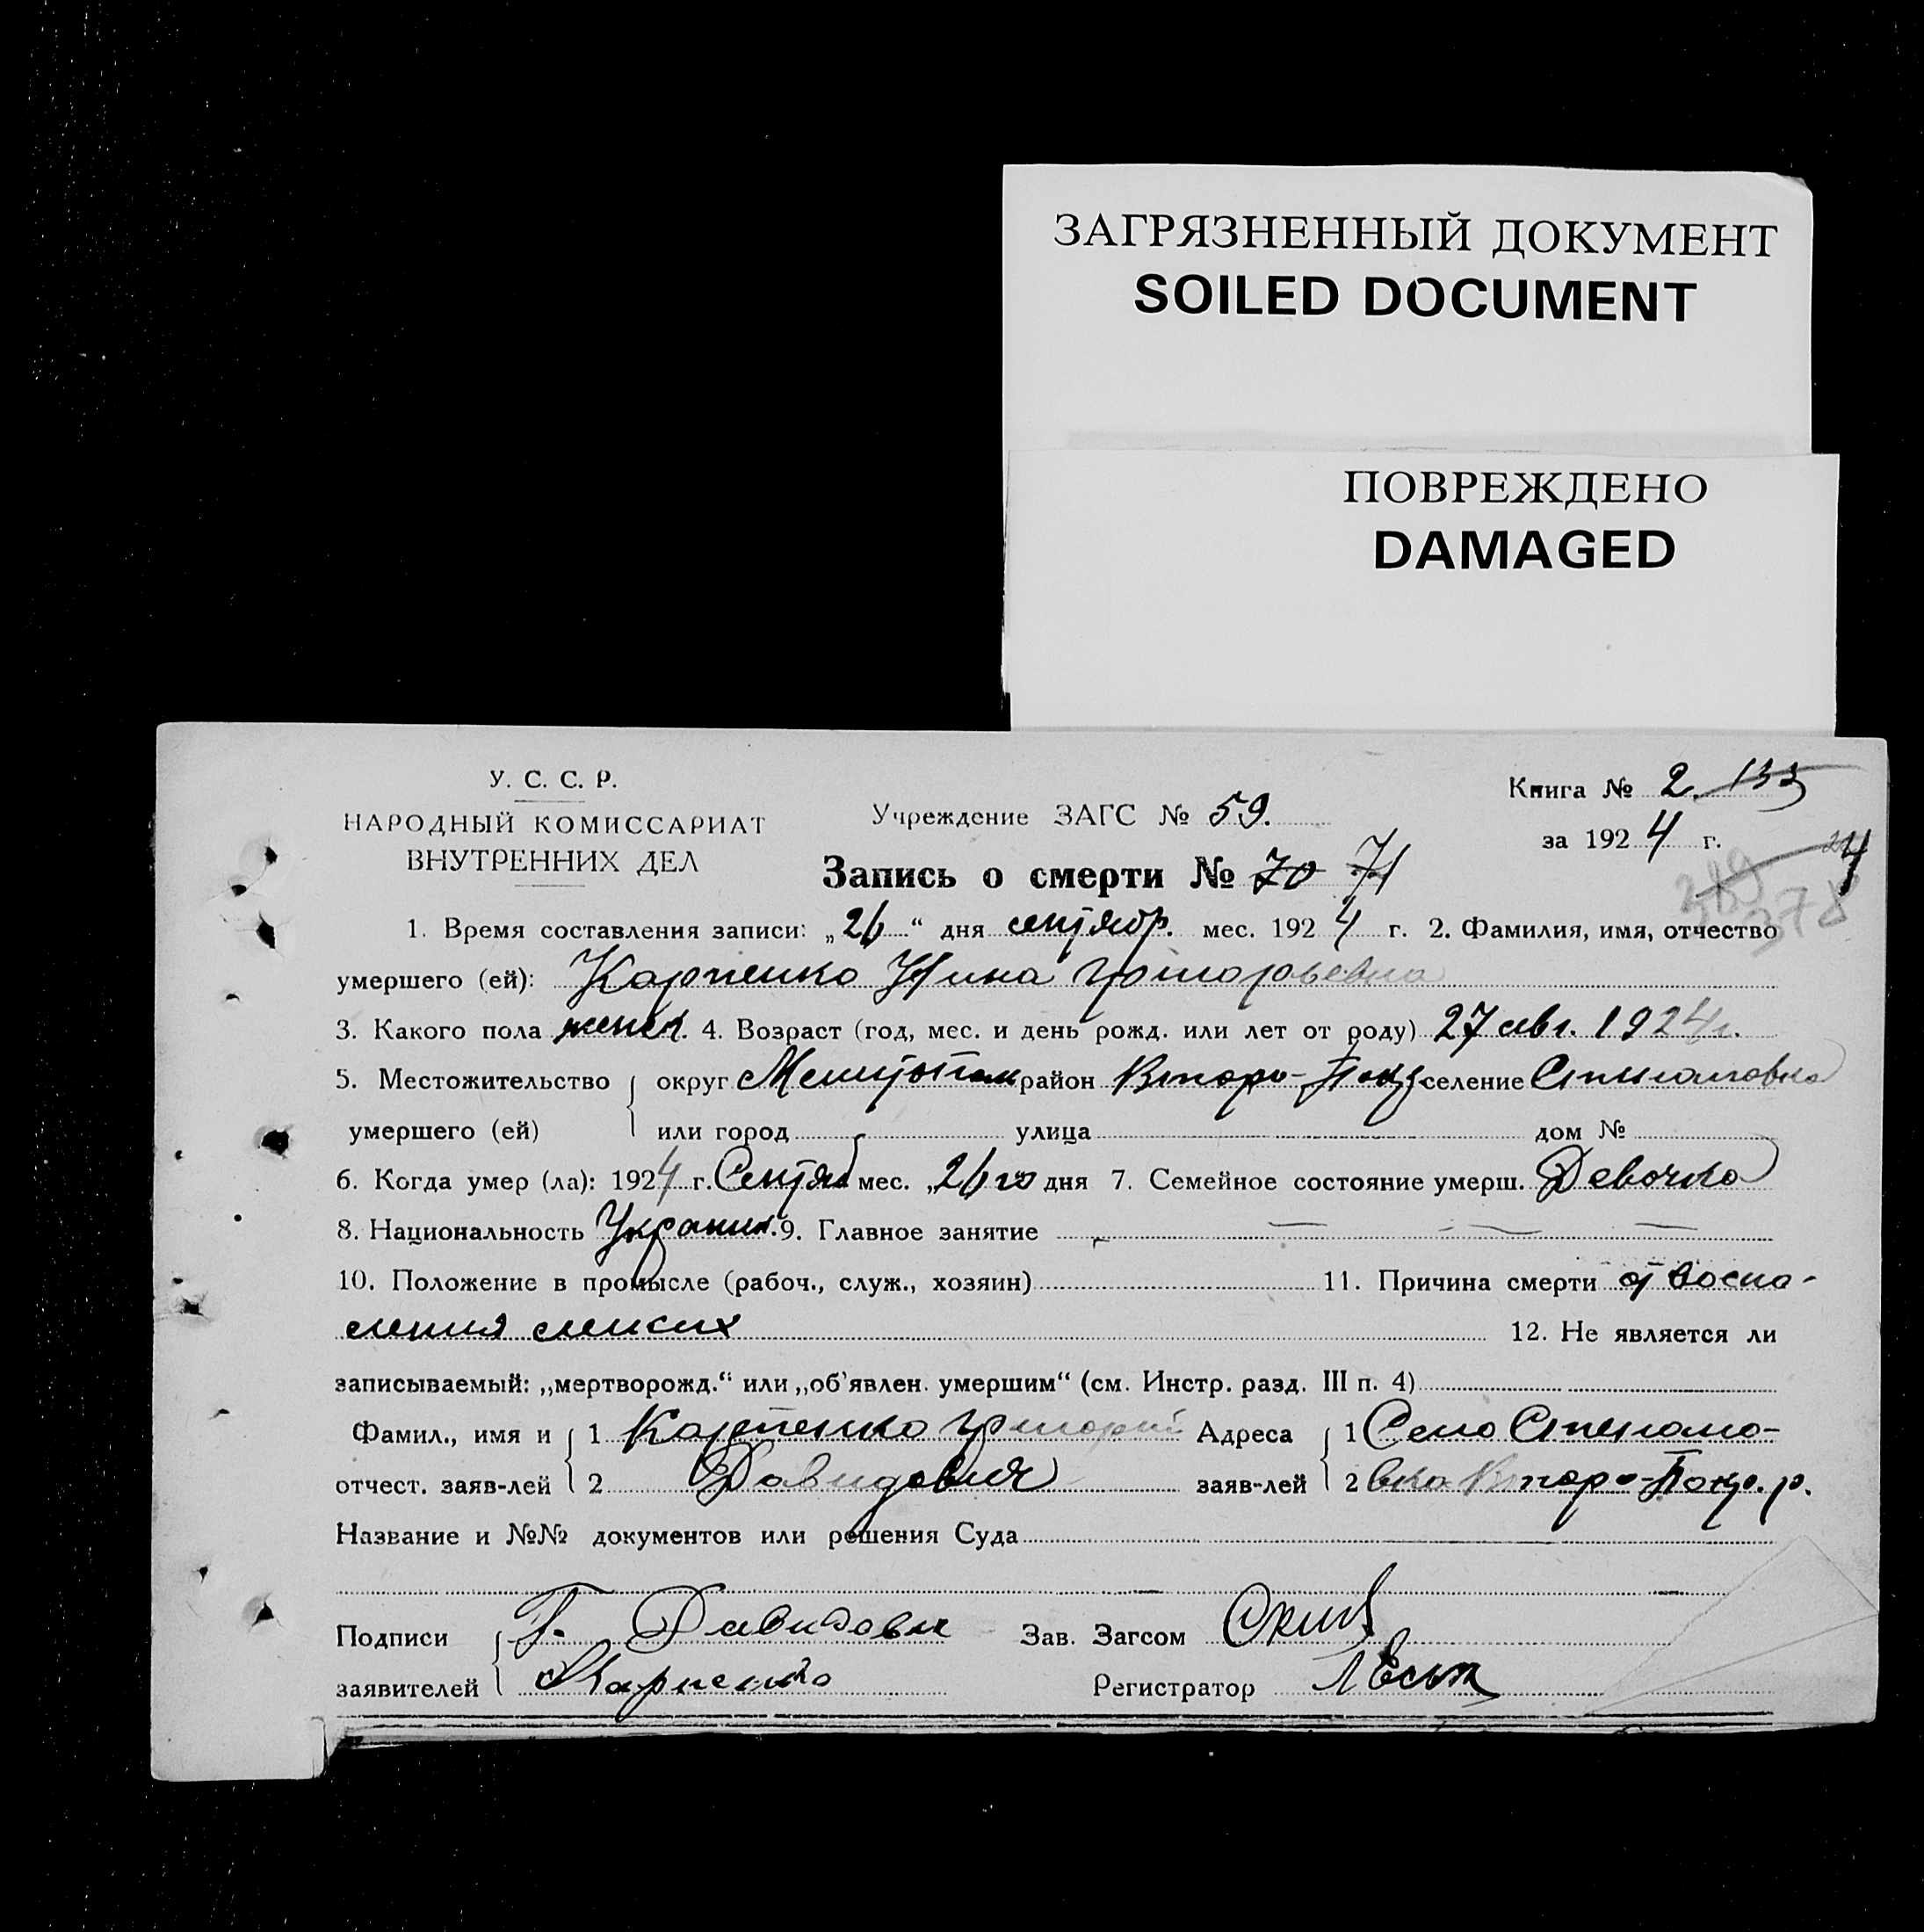 ЗАГРЯЗНЕННЫЙ ДОКУМЕНТ
SOILED DOCUMENT
ПОВРЕЖДЕНО
DAMAGED
У. С. С. Р.
НАРОДНЫЙ КОМИССАРИАТ
ВНУТРЕННИХ ДЕЛ
Учреждение ЗАГС № 59.
Книга № 2. 133
за 1924 г.
Запись о смерти № 70 71
378
1. Время составления записи: „26“ дня сентябр. мес. 1924 г. 2. Фамилия, имя, отчество
умершего (ей): Карпенко Нина Григорьевна
3. Какого пола женск. 4. Возраст (год, мес. и день рожд. или лет от роду) 27 авг. 1924 г.
5. Местожительство умершего (ей) округ Мелитопол район Второ-Покр. селение Степановка
или город улица дом №
6. Когда умер (ла): 1924 г. Сентяб мес. „26 го дня 7. Семейное состояние умерш. Девочка
8. Национальность Украин. 9. Главное занятие
10. Положение в промысле (рабоч., служ., хозяин) 11. Причина смерти от воспа-
ления легких 12. Не является ли
записываемый: „мертворожд.“ или „об'явлен. умершим“ (см. Инстр. разд. III п. 4)
Фамил., имя и 1 Карпенко Григорий Адреса 1 Село Степано-
отчест. заяв-лей 2 Давидович заяв-лей 2 вка Второ-Покр. р.
Название и №№ документов или решения Суда
Подписи Г. Давидович Зав. Загсом
заявителей Карпенко Регистратор